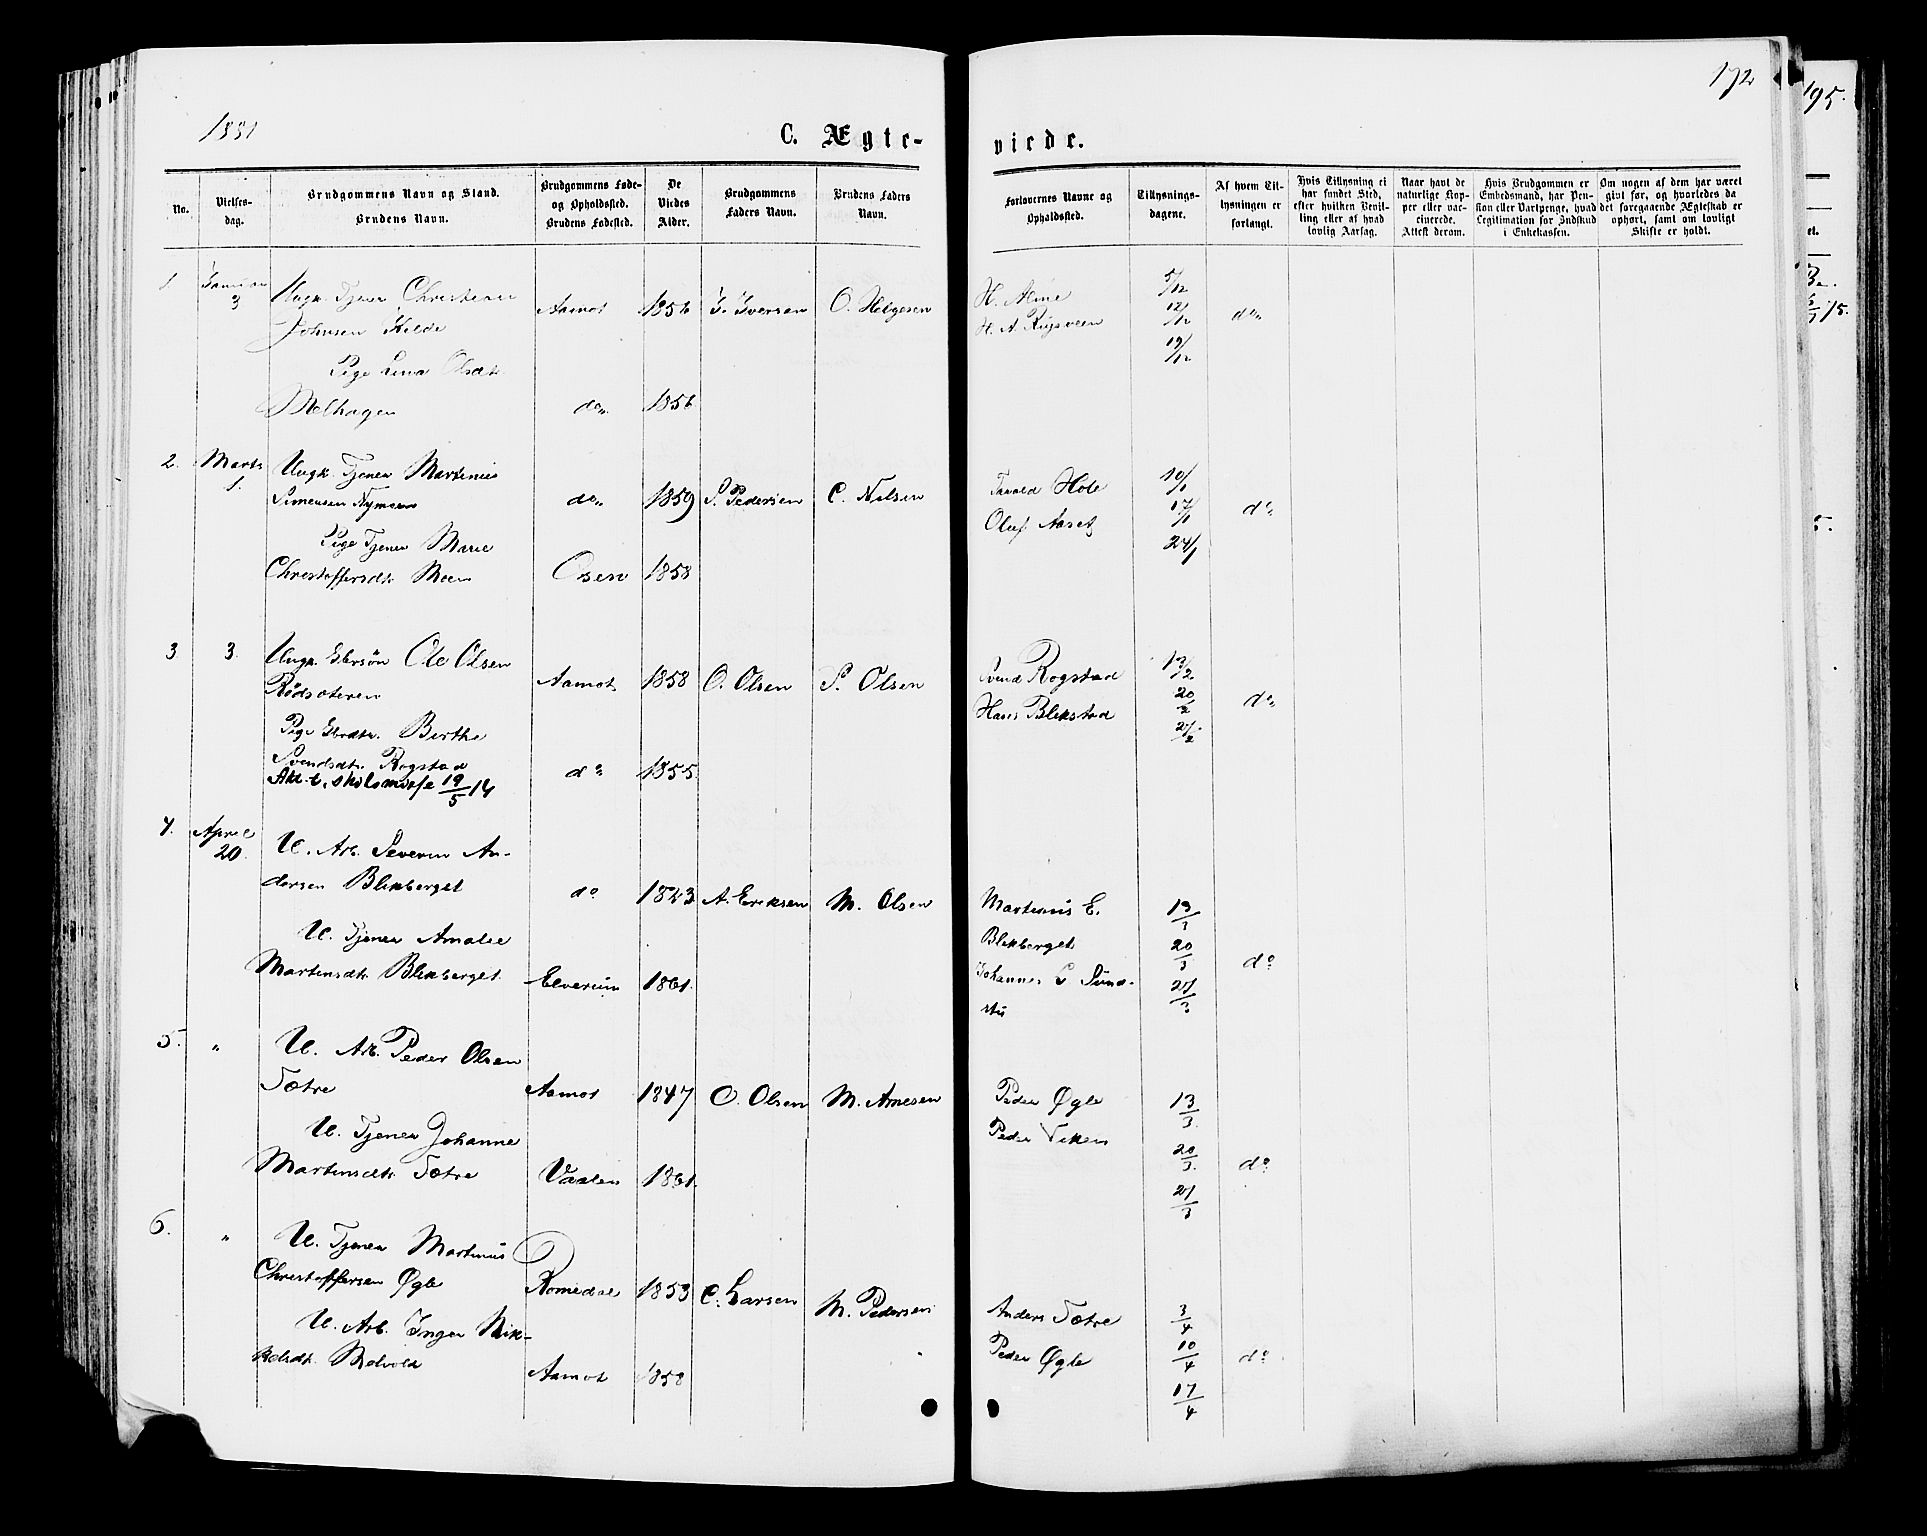 1881
C. Ægte-
viede.
172
195.
No.
Vielses-
dag.
Brudgommens Navn og Stand.
Brudens Navn.
Brudgommens Føde-
og Opholdssted.
Brudens Fødested.
De
Viedes
Alder.
Brudgommens
Faders Navn.
Brudens Faders
Navn.
Forlovernes Navne og
Opholdssted.
Tillysnings-
dagene.
Af hvem Til-
lysningen er
forlangt.
Hvis Tillysning ei
har fundet Sted,
efter hvilken Bevil-
ling eller af hvad
lovlig Aarsag.
Naar havt de
naturlige Kop-
per eller vac-
cinerede.
Attest derom.
Hvis Brudgommen er
Embedsmand, har Pen-
sion eller Vartpenge, hvad
Legitimation for Indskud
i Enkekassen.
Om nogen af dem har været
gift før, og hvorledes da
det foregaaende Ægteskab er
ophørt, samt om lovligt
Skifte er holdt.
1 Januar 3
Ungk. Tjener Christian
Johnsen Kilde
Aamot 1856 I. Iversen O. Helgesen
Pige Lina Olsdtr
Melhagen
do 1856
H. Alme
H. A. Rugsveen
5/12
12/12
19/12
do
2. Marts 1.
Ungk. Tjener Martinus
Simensen Nymoen
do 1859 S. Pedersen C. Nilsen
Pige Tjener Marie
Christoffersdtr Moen
Osen 1858
Hole
Oluf Aaset
10/1
17/1
24/1
do
3 3.
Ungk. Gbrsøn Ole Olsen
Rødsæteren
Aamot 1858 O. Olsen S. Olsen
Pige Gbrdtr. Berthe
Svendsdtr. Rogstad
do 1855
Akt. t. skilsmisse 19/5 14
Svend Rogstad
Hans Blikstad
13/2
20/2
27/2
do
4. April 20.
U. Arb. Severin An-
dersen Blikberget
do 1823 A. Eriksen M. Olsen
U. Tjener Amalie
Martinsdtr Blikberget
Elverum 1861.
Martinus E.
Blikberget
Johannes Sund-
stu
13/3
20/3
27/3
do
5. "
U. Arb. Peder Olsen
Sætre
Aamot 1847 O. Olsen M. Arnesen
U. Tjener Johanne
Martinsdtr Sætre
Vaaler 1861.
Peder Øgle
Peder Viken
13/3
20/3
27/3
do
6. "
U. Tjener Martinus
Christoffersen Øgle
Romedal 1853 C. Larsen M. Pedersen
U. Arb. Inger Mik-
kelsdtr. Melvold
Aamot 1858
Anders Sætre
Peder Øgle
3/4
10/4
17/4
do